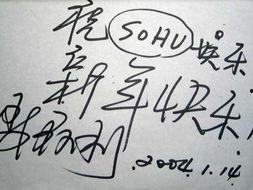 祝 SOHU 娱乐
新年快乐!
2002.1.14